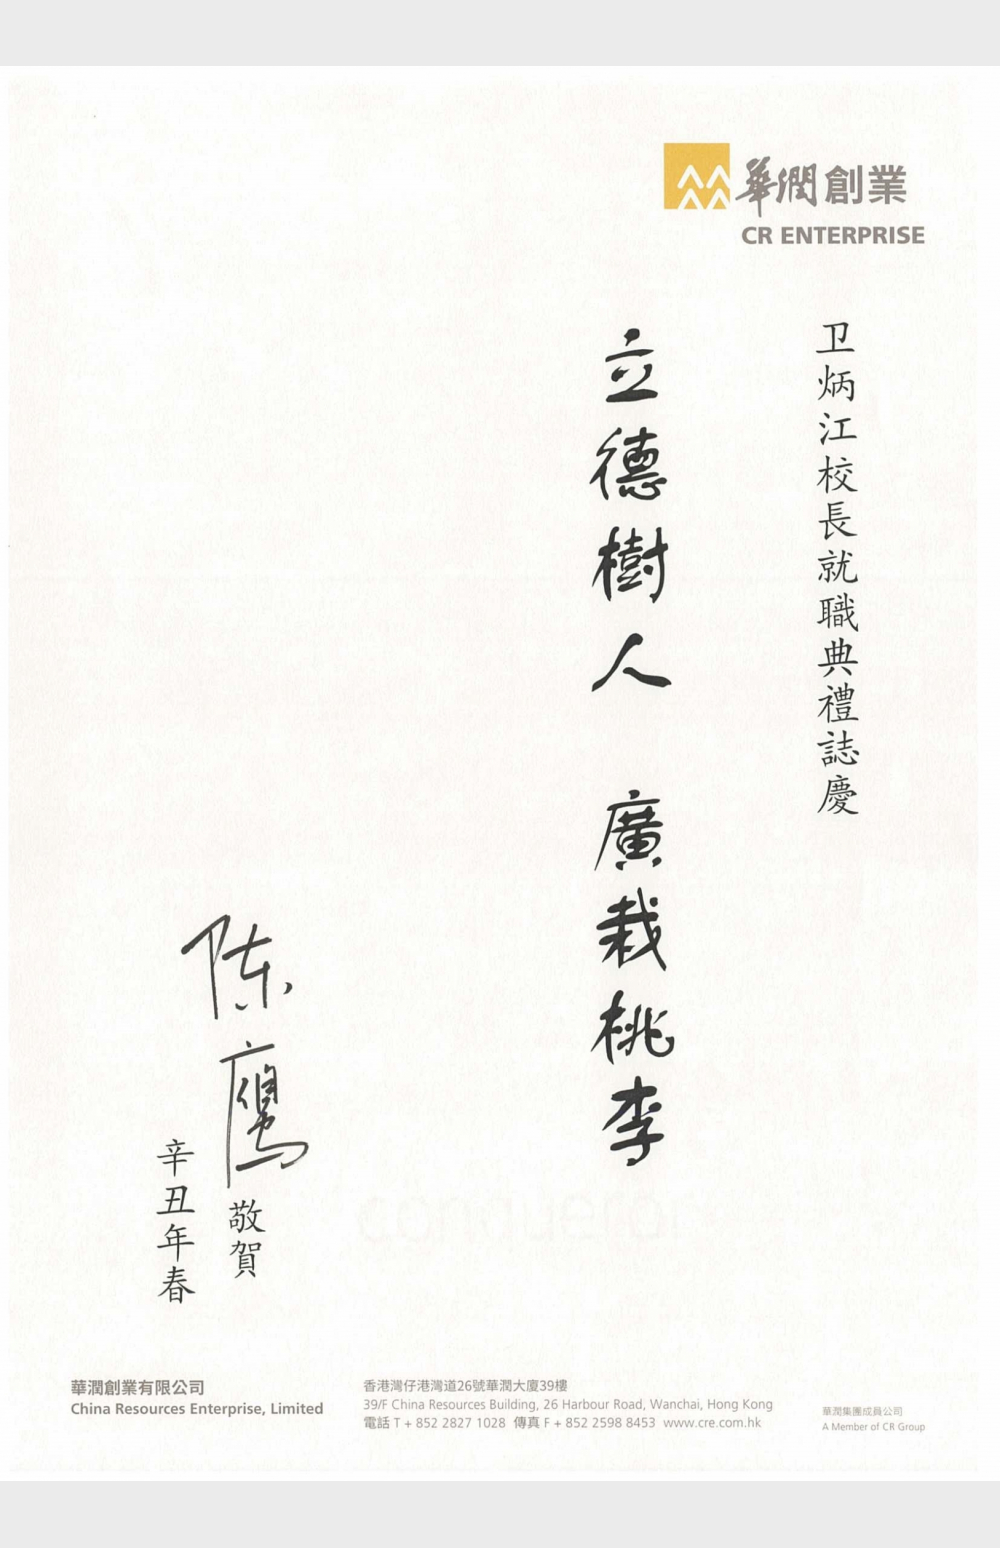 華潤創業
CR ENTERPRISE
卫炳江校長就職典禮誌慶
立德樹人 廣栽桃李
陈鹰 敬賀
辛丑年春
conqueror
華潤創業有限公司
China Resources Enterprise, Limited
香港灣仔港灣道26號華潤大廈39樓
39/F China Resources Building, 26 Harbour Road, Wanchai, Hong Kong
電話 T + 852 2827 1028 傳真 F + 852 2598 8453 www.cre.com.hk
華潤集團成員公司
A Member of CR Group